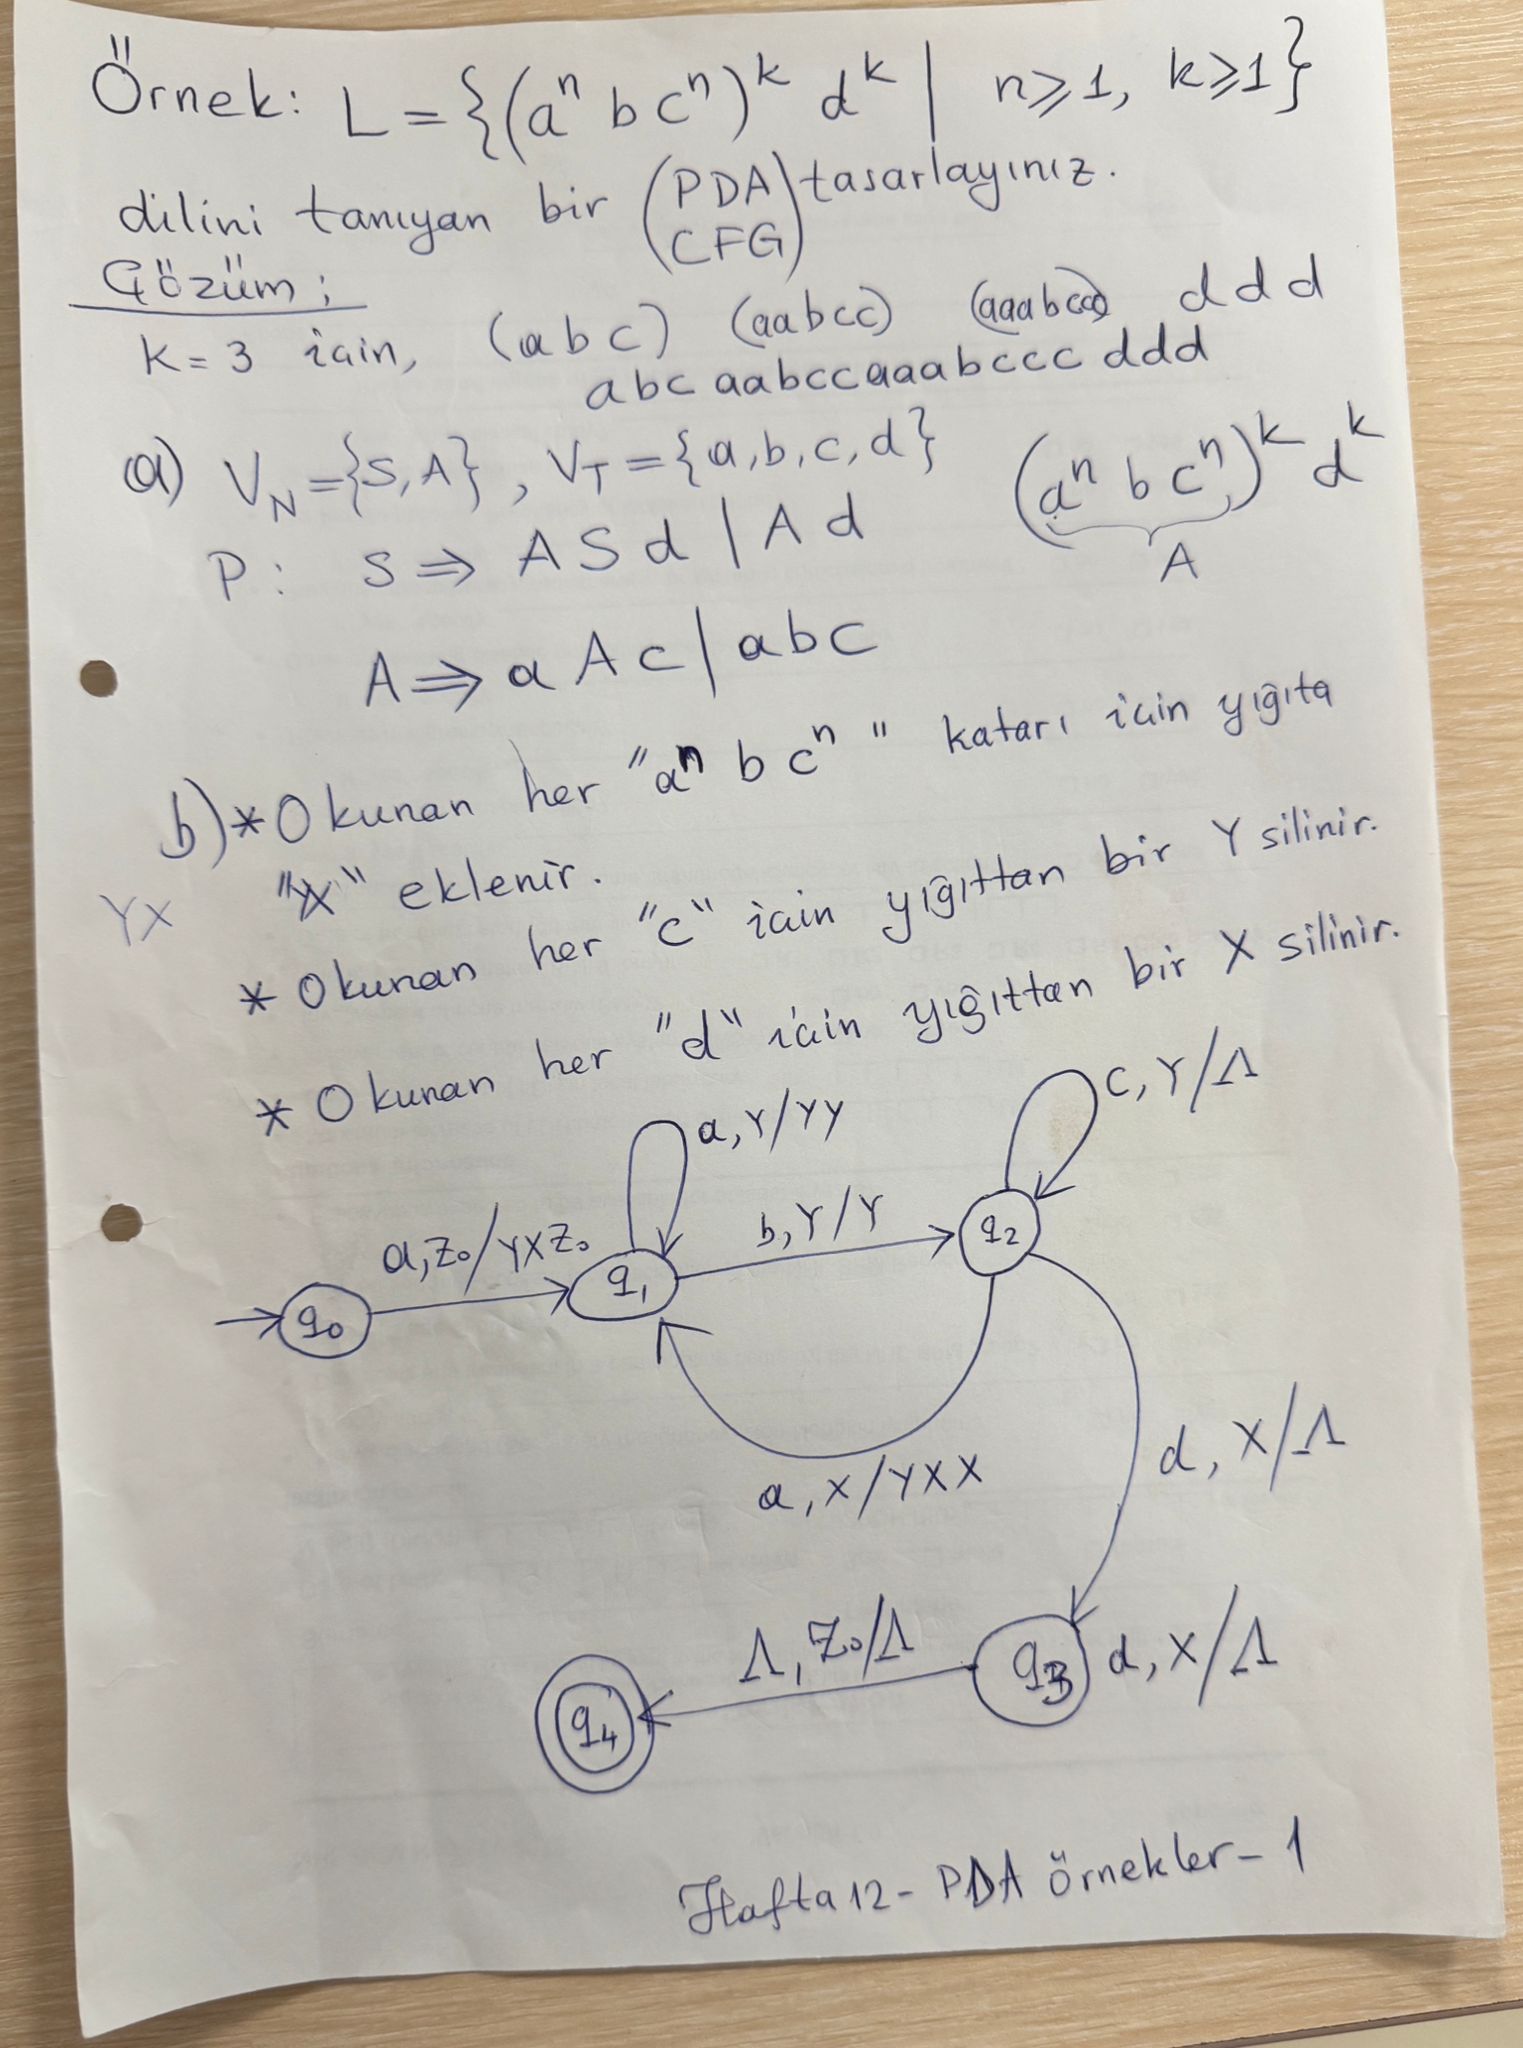 Örnek: L = {(aⁿ b cⁿ)ᵏ dᵏ | n⩾1, k⩾1}
dilini tanıyan bir (PDA CFG) tasarlayınız.
Çözüm:
K = 3 için, (abc) (aabcc) (aaabccc) ddd
abcaabccaaabcccddd
a) V_N = {S, A}, V_T = {a, b, c, d} (aⁿ b cⁿ)ᵏ dᵏ
A
P: S ⇒ A S d | A d
A ⇒ a A c | abc
b) * Okunan her "aⁿ b cⁿ" katarı için yığıta
YX "X" eklenir.
* Okunan her "c" için yığıttan bir Y silinir.
* Okunan her "d" için yığıttan bir X silinir.
a, Y/YY
c, Y/Λ
a, Z₀/YXZ₀
b, Y/Y
q₀
q₁
q₂
a, X/YXX
d, X/Λ
Λ, Z₀/Λ
q₃
d, X/Λ
q₄
Hafta 12 - PDA örnekler - 1